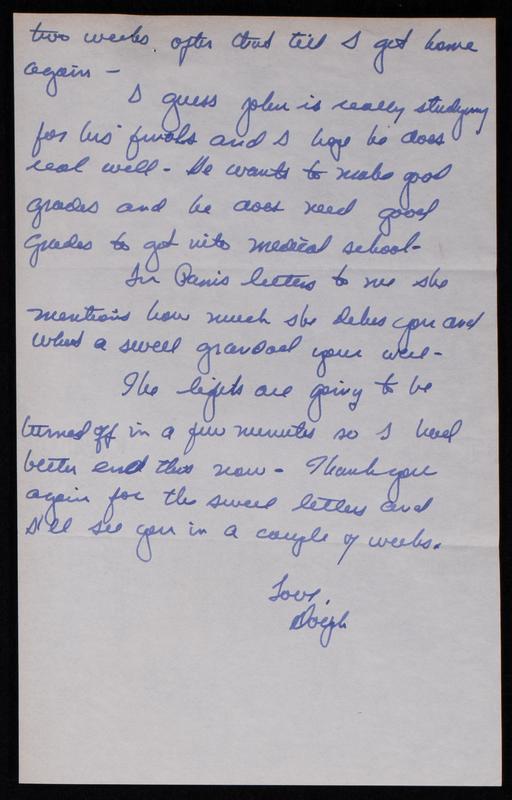 two weeks after that till I get home
again -
I guess John is really studying
for his finals and I hope he does
real well - He wants to make good
grades and he does need good
grades to get into medical school -
In Pam's letters to me she
mentions how much she likes you and
what a sweet grandad you were -
The lights are going to be
turned off in a few minutes so I had
better end this now - Thank you
again for the sweet letters and
I'll see you in a couple of weeks.
Love,